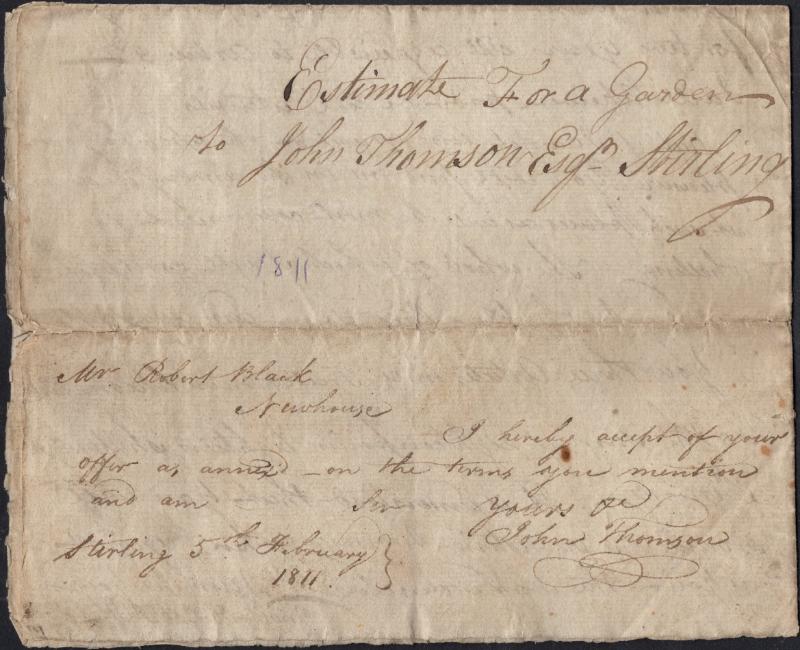 Estimate For a Garden
to John Thomson Esqr. Stirling
1811
Mr Robert Black
Newhouse
I hereby accept of your
offer as annex'd on the terms you mention
and am Sir yours &c
John Thomson
Stirling 5th February
1811.